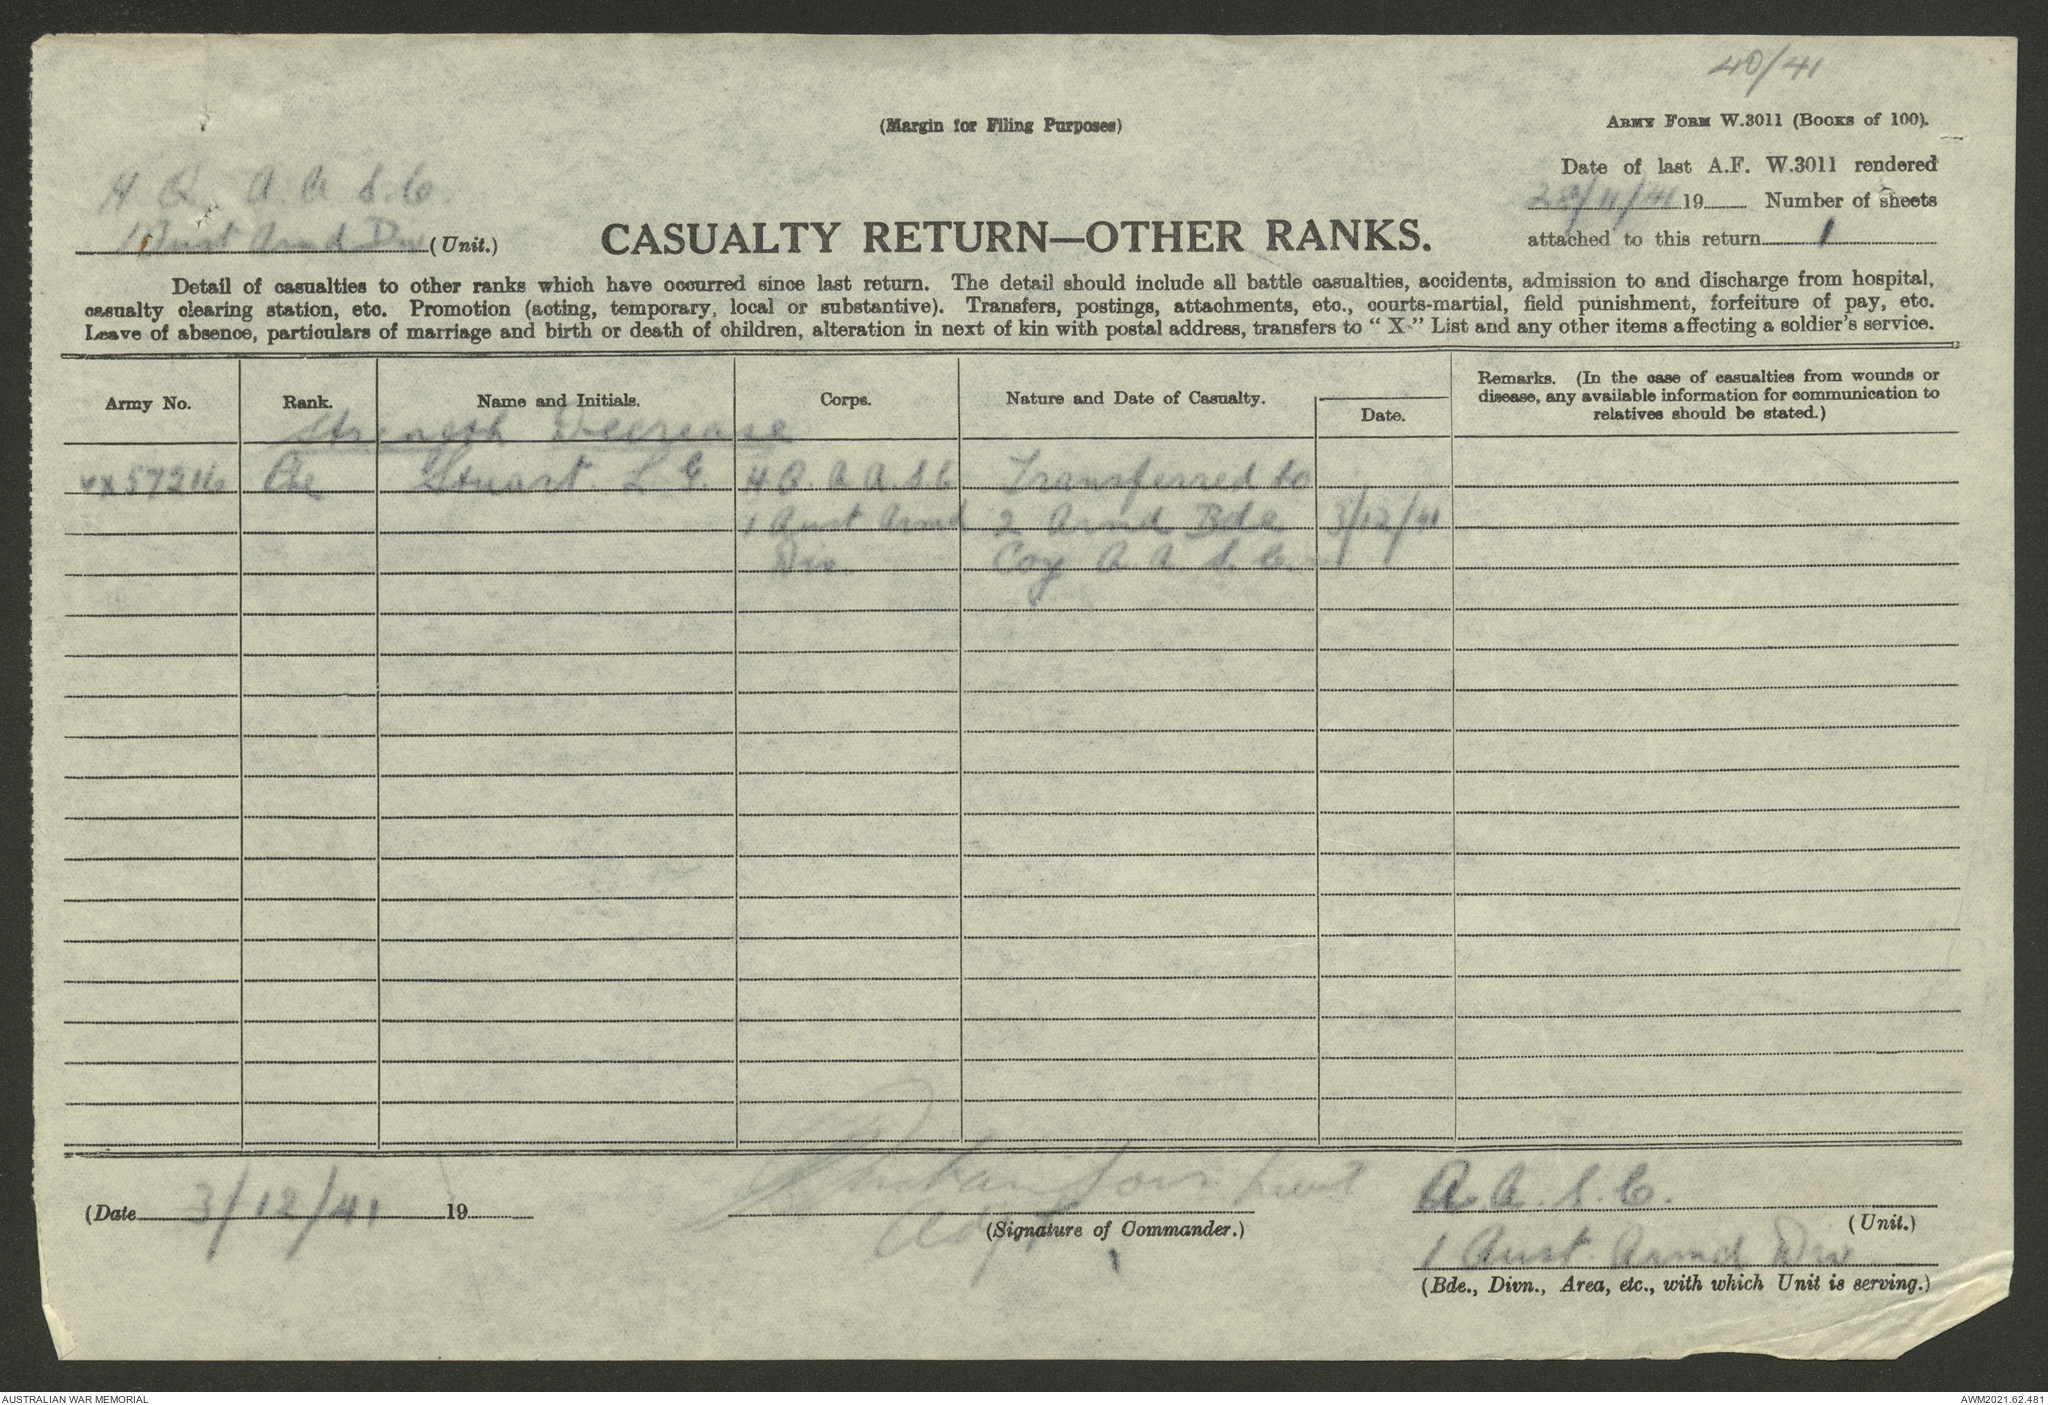 40/41
(Margin for Filing Purposes)
ARMY FORM W.3011 (BOOKS of 100).
Date of last A.F. W.3011 rendered
28/11/41 19 Number of sheets
attached to this return 1
H.Q. A.A.S.C.
1 Aust Armd Div (Unit.)
CASUALTY RETURN—OTHER RANKS.
Detail of casualties to other ranks which have occurred since last return. The detail should include all battle casualties, accidents, admission to and discharge from hospital,
casualty clearing station, etc. Promotion (acting, temporary, local or substantive). Transfers, postings, attachments, etc., courts-martial, field punishment, forfeiture of pay, etc.
Leave of absence, particulars of marriage and birth or death of children, alteration in next of kin with postal address, transfers to "X" List and any other items affecting a soldier's service.
Army No. Rank. Name and Initials. Corps. Nature and Date of Casualty. Date. Remarks. (In the case of casualties from wounds or
disease, any available information for communication to
relatives should be stated.)
Strength Decrease
VX57216 Pte Stuart. L G. HQ. A A S C Transferred to
1 Aust Armd 2 Armd Bde 3/12/41
Div. Coy A. A. S. C.
(Date 3/12/41 19
Lieut
Adjt
(Signature of Commander.)
A.A.S.C.
(Unit.)
1 Aust. Armd Div
(Bde., Divn., Area, etc., with which Unit is serving.)
AUSTRALIAN WAR MEMORIAL
AWM2021.62.481